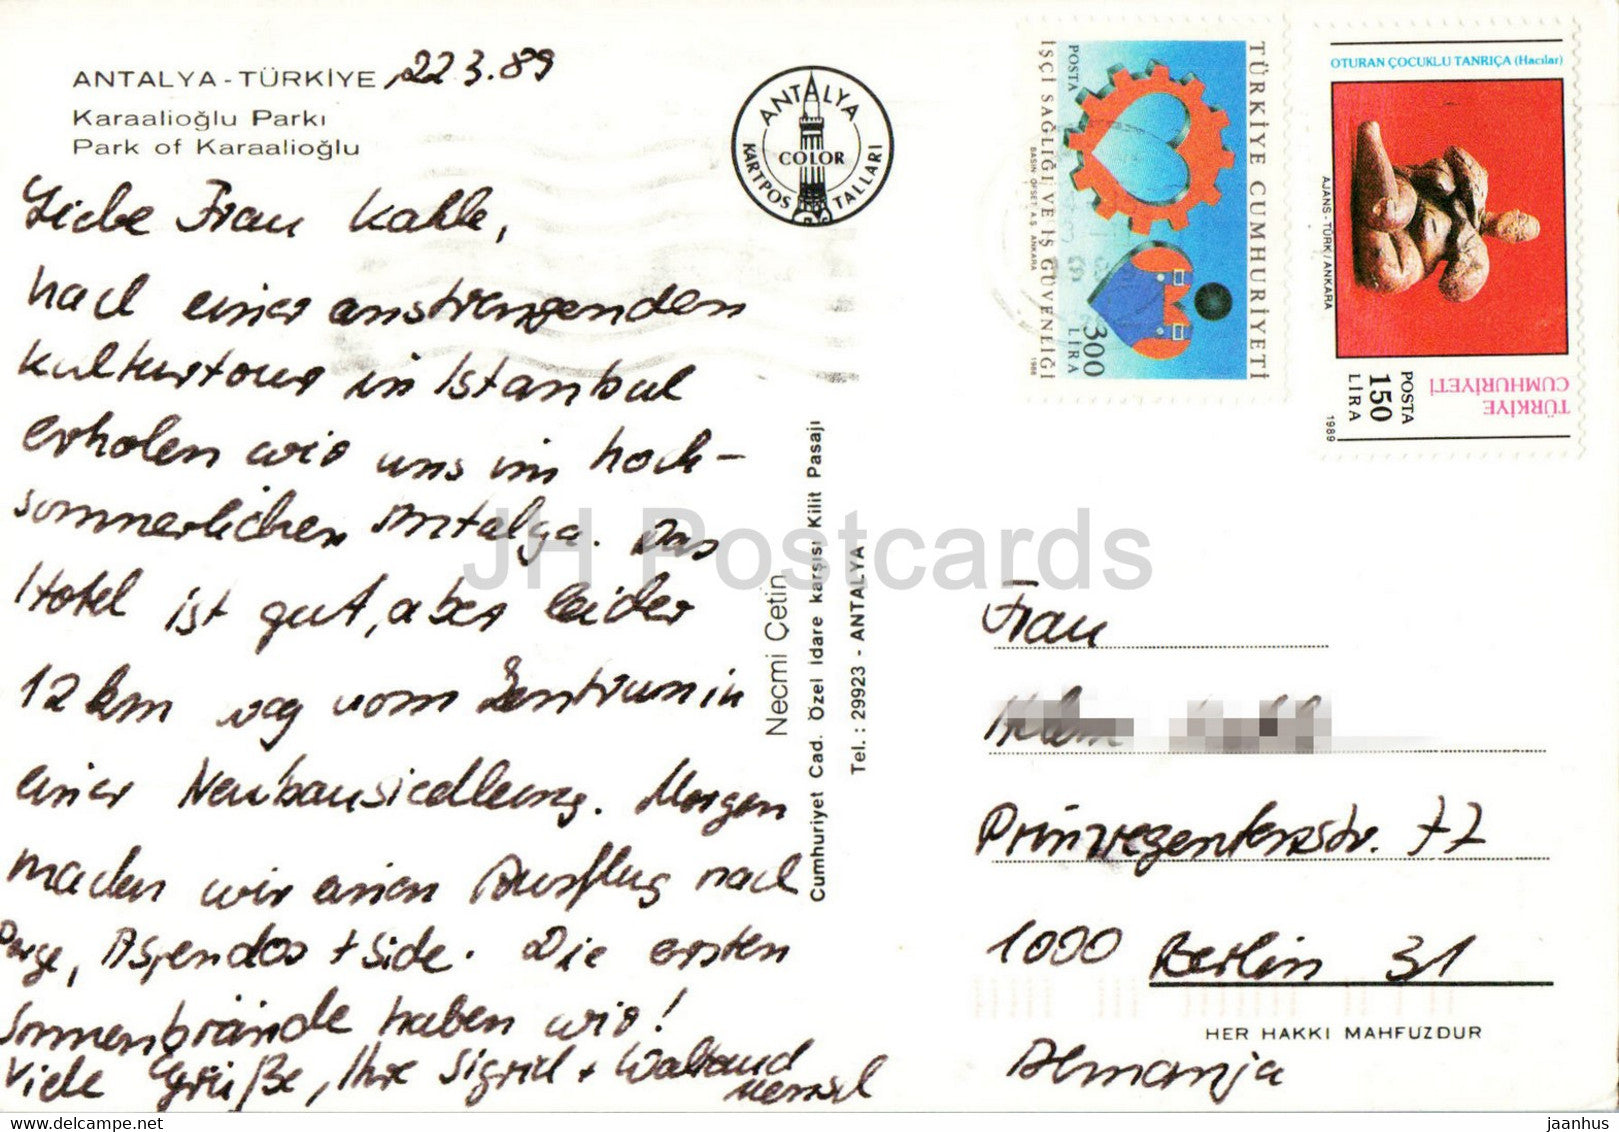 ANTALYA - TÜRKİYE, 22.3.89
Karaalioğlu Parkı
Park of Karaalioğlu
Liebe Frau Kahle,
nach einer anstrengenden
Kulturtour in Istanbul
erholen wir uns im hoch-
sommerlichen Antalya. Das
Hotel ist gut, aber leider
12 km weg vom Zentrum in
einer Neubausiedlung. Morgen
machen wir einen Ausflug nach
Perge, Aspendos + Side. Die ersten
Sonnenbrände haben wir!
Viele Grüße, Ihre Sigrid + Waltraud
Mensel
ANTALYA
COLOR
KARTPOSTALLARI
Necmi Çetin
Cumhuriyet Cad. Özel İdare karşısı Kilit Pasajı
Tel. : 29923 - ANTALYA
TÜRKİYE CUMHURİYETİ
POSTA
300
LİRA
İŞÇİ SAĞLIĞI VE İŞ GÜVENLİĞİ
BASIN OFSET A.Ş. ANKARA
1988
OTURAN ÇOCUKLU TANRIÇA (Hacılar)
AJANS - TÜRK / ANKARA
TÜRKİYE
CUMHURİYETİ
POSTA
150
LİRA
1989
Frau
Prinzregentenstr. 77
1000 Berlin 31
HER HAKKI MAHFUZDUR
Almanja
JH Postcards
jaanhus
www.delcampe.net